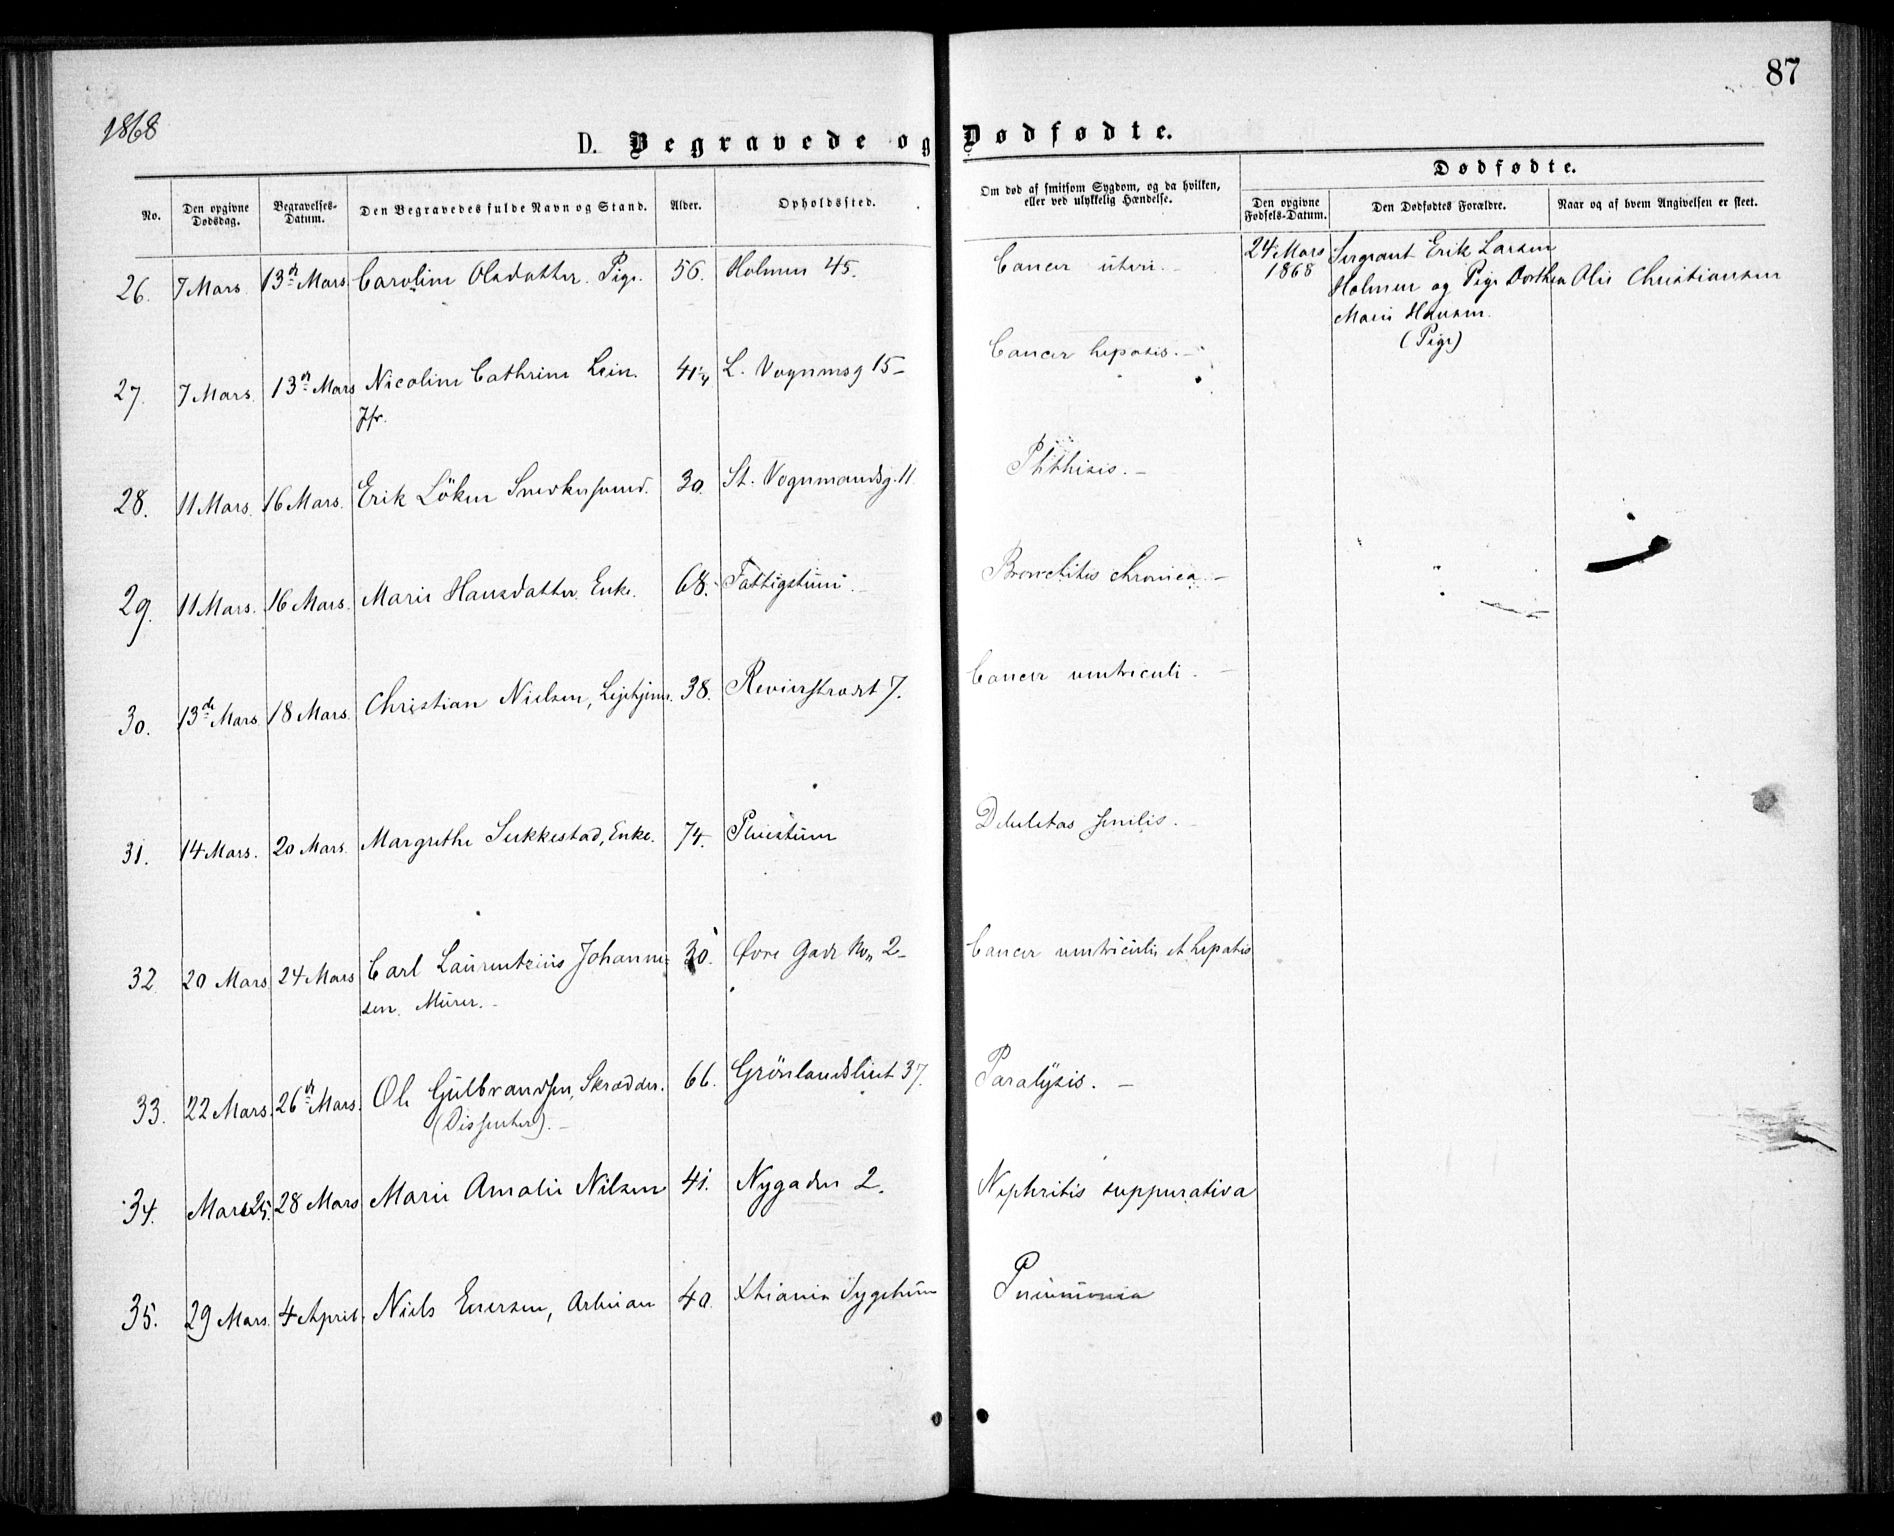 87
1868
D. Begravede og Dødfødte.
No.
Den opgivne Dødsdag.
Begravelses-Datum.
Den Begravedes fulde Navn og Stand.
Alder.
Opholdssted.
Om død af smitsom Sygdom, og da hvilken, eller ved ulykkelig Hændelse.
Dødfødte.
Den opgivne Fødsels-Datum.
Den Dødfødtes Forældre.
Naar og af hvem Angivelsen er skeet.
26. 7 Mars 13de Mars Caroline Olsdatter. Pige. 56. Holmen 45. Cancer uteri. –
24 Mars 1868
Sergeant Erik Larsen
Holmen og Pige Dorthea
Marie Hansen.
(Pige)
Olu Christiansen
27. 7 Mars. 13de Mars Nicoline Cathrine Lein. 41 L. Vognmsg 15 – Cancer hepatis. –
Jfr.
28. 11 Mars. 16 Mars. Erik Löken Snedkersvend. 30. St. Vognmandsg. 11. Phthisis. –
29. 11 Mars. 16 Mars. Marie Hansdatter. Enke. 68. Fattigstuen. Bronchitis chronica. –
30. 13de Mars 18 Mars. Christian Nielsen, 38. Revierstrædet 7. Cancer ventriculi. –
31. 14 Mars. 20 Mars. Margrethe Sukkestad, Enke. 74. Debilitas senilis. –
32 20 Mars 24 Mars Carl Laurentzius Johanne- 30. Øvre Gade No 2 – Cancer ventriculi, et hepatis
sen. Murer. –
33. 22 Mars. 26de Mars. Ole Gulbrandsen, Skrædder. 66. Grönlandsleret 37. Paralysis. –
(Dissenter). –
34. Mars 25. 28 Mars Marie Amalie Nilsen 41. Nygaden 2. Nephritis suppurativa
35. 29 Mars. 4 April. Niels Enersen, Arbman 40. Xtiania Sygehuus Pneumonia